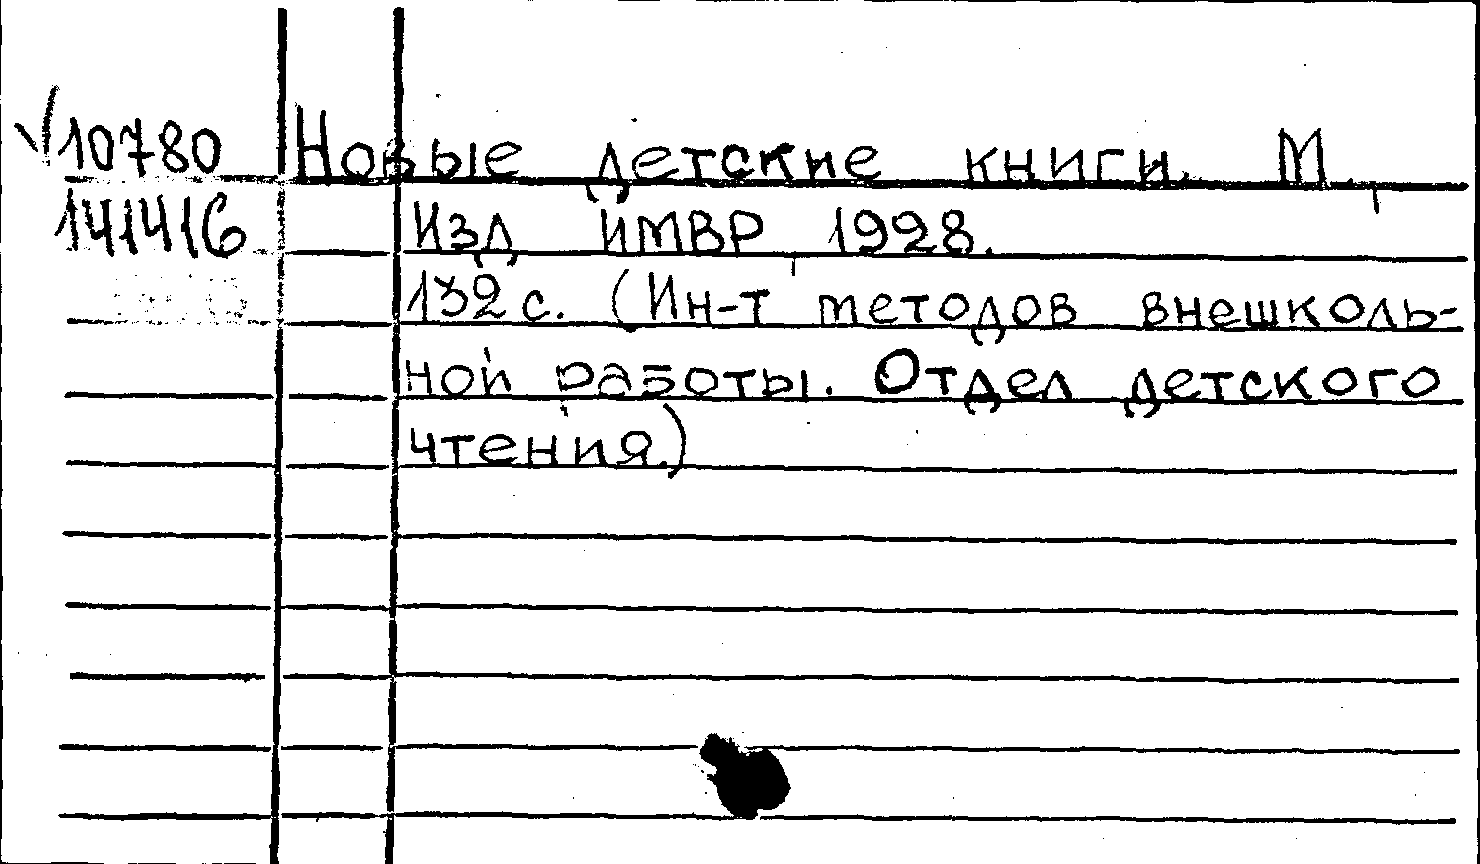 √10780 Новые детские книги. М.,
141416 Изд ИМВР, 1928.
132 с. (Ин-т методов внешколь-
ной работы. Отдел детского
чтения.)